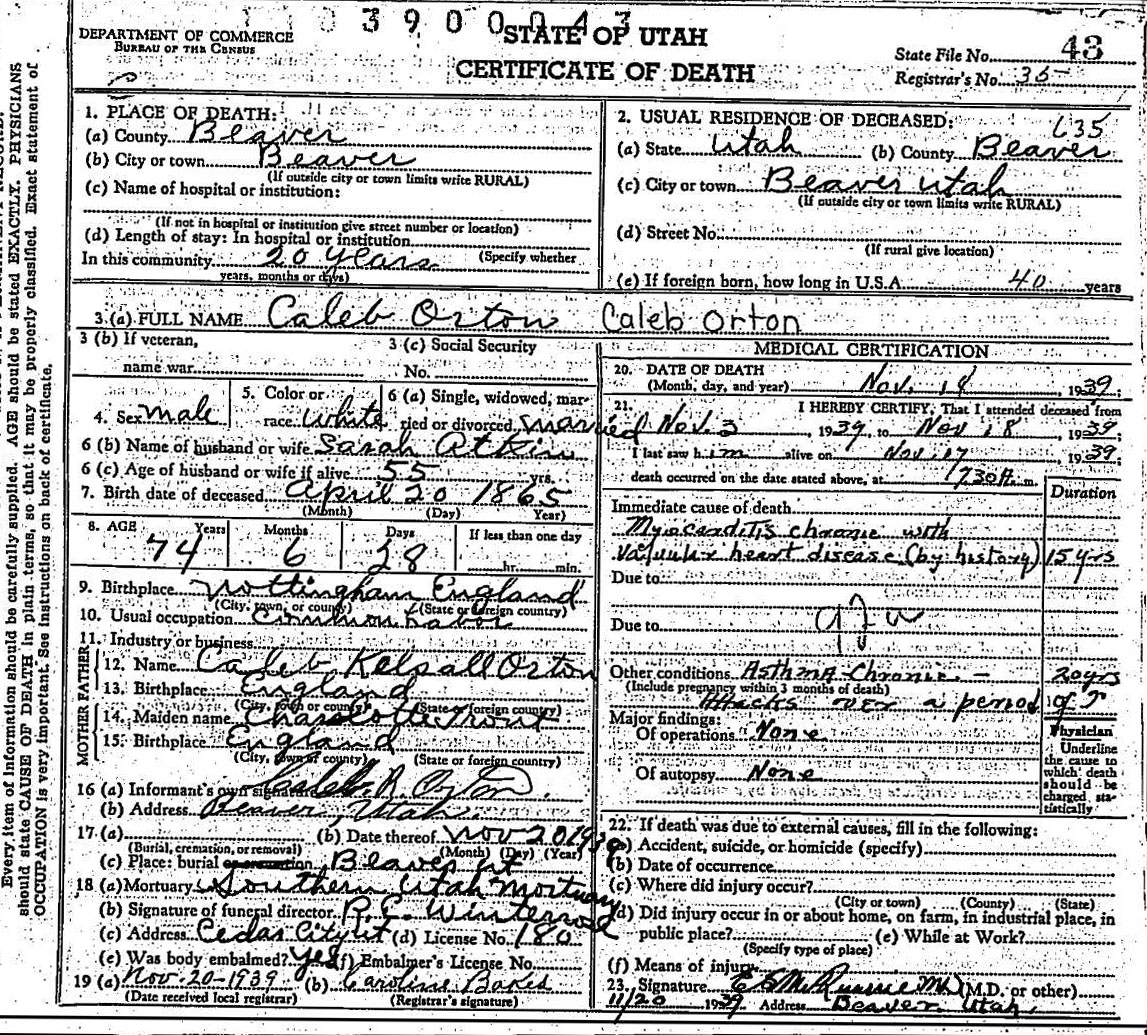 3 9 0 0 0 4 3
DEPARTMENT OF COMMERCE
BUREAU OF THE CENSUS
STATE OF UTAH
CERTIFICATE OF DEATH
State File No. 43
Registrar's No. 35
1. PLACE OF DEATH:
(a) County Beaver
(b) City or town Beaver
(If outside city or town limits write RURAL)
(c) Name of hospital or institution:
(If not in hospital or institution give street number or location)
(d) Length of stay: In hospital or institution
In this community 20 years (Specify whether
years, months or days)
2. USUAL RESIDENCE OF DECEASED: 635
(a) State Utah (b) County Beaver
(c) City or town Beaver Utah
(If outside city or town limits write RURAL)
(d) Street No.
(If rural give location)
(e) If foreign born, how long in U.S.A. 40 years
3. (a) FULL NAME Caleb Orton Caleb Orton
3 (b) If veteran, 3 (c) Social Security
name war No.
4. Sex male 5. Color or race White 6 (a) Single, widowed, married or divorced married
6 (b) Name of husband or wife Sarah Atkin
6 (c) Age of husband or wife if alive 55 yrs.
7. Birth date of deceased April 20 1865
(Month) (Day) Year)
8. AGE Years Months Days If less than one day
74 6 28 hr. min.
9. Birthplace Nottingham England
(City, town, or county) (State or foreign country)
10. Usual occupation Common Labor
11. Industry or business
FATHER
12. Name Caleb Kelsall Orton
13. Birthplace England
(City, town or county) (State or foreign country)
MOTHER
14. Maiden name Charlotte
15. Birthplace England
(City, town or county) (State or foreign country)
16 (a) Informant's own signature Caleb A. Orton
(b) Address Beaver, Utah.
17. (a) (b) Date thereof Nov 20 1939
(Burial, cremation, or removal) (Month) (Day) (Year)
(c) Place: burial or cremation Beaver Ut
18 (a) Mortuary Southern Utah Mortuary
(b) Signature of funeral director R. E. Winterrose
(c) Address Cedar City Ut (d) License No. 180
(e) Was body embalmed? yes (f) Embalmer's License No.
19 (a) Nov-20-1939 (b) Caroline Bakes
(Date received local registrar) (Registrar's signature)
MEDICAL CERTIFICATION
20. DATE OF DEATH
(Month, day, and year) Nov. 18 1939
21. I HEREBY CERTIFY, That I attended deceased from
Nov. 3, 1939, to Nov 18, 1939;
I last saw him alive on Nov. 17, 1939;
death occurred on the date stated above, at 730 A. m.
Duration
Immediate cause of death
Myocarditis chronic with
valvular heart disease (by history) 15 yrs
Due to
Due to
Other conditions Asthma-Chronic - 20 yrs
(Include pregnancy within 3 months of death)
Attacks over a period of
Major findings:
Of operations None
Of autopsy None
Physician
Underline
the cause to
which death
should be
charged sta-
tistically
22. If death was due to external causes, fill in the following:
(a) Accident, suicide, or homicide (specify)
(b) Date of occurrence
(c) Where did injury occur?
(City or town) (County) (State)
(d) Did injury occur in or about home, on farm, in industrial place, in
public place? (e) While at Work?
(Specify type of place)
(f) Means of injury
23. Signature (M.D. or other)
11/20 1939 Address Beaver Utah.
Every item of information should be carefully supplied. AGE should be stated EXACTLY. PHYSICIANS
should state CAUSE OF DEATH in plain terms, so that it may be properly classified. Exact statement of
OCCUPATION is very important. See instructions on back of certificate.